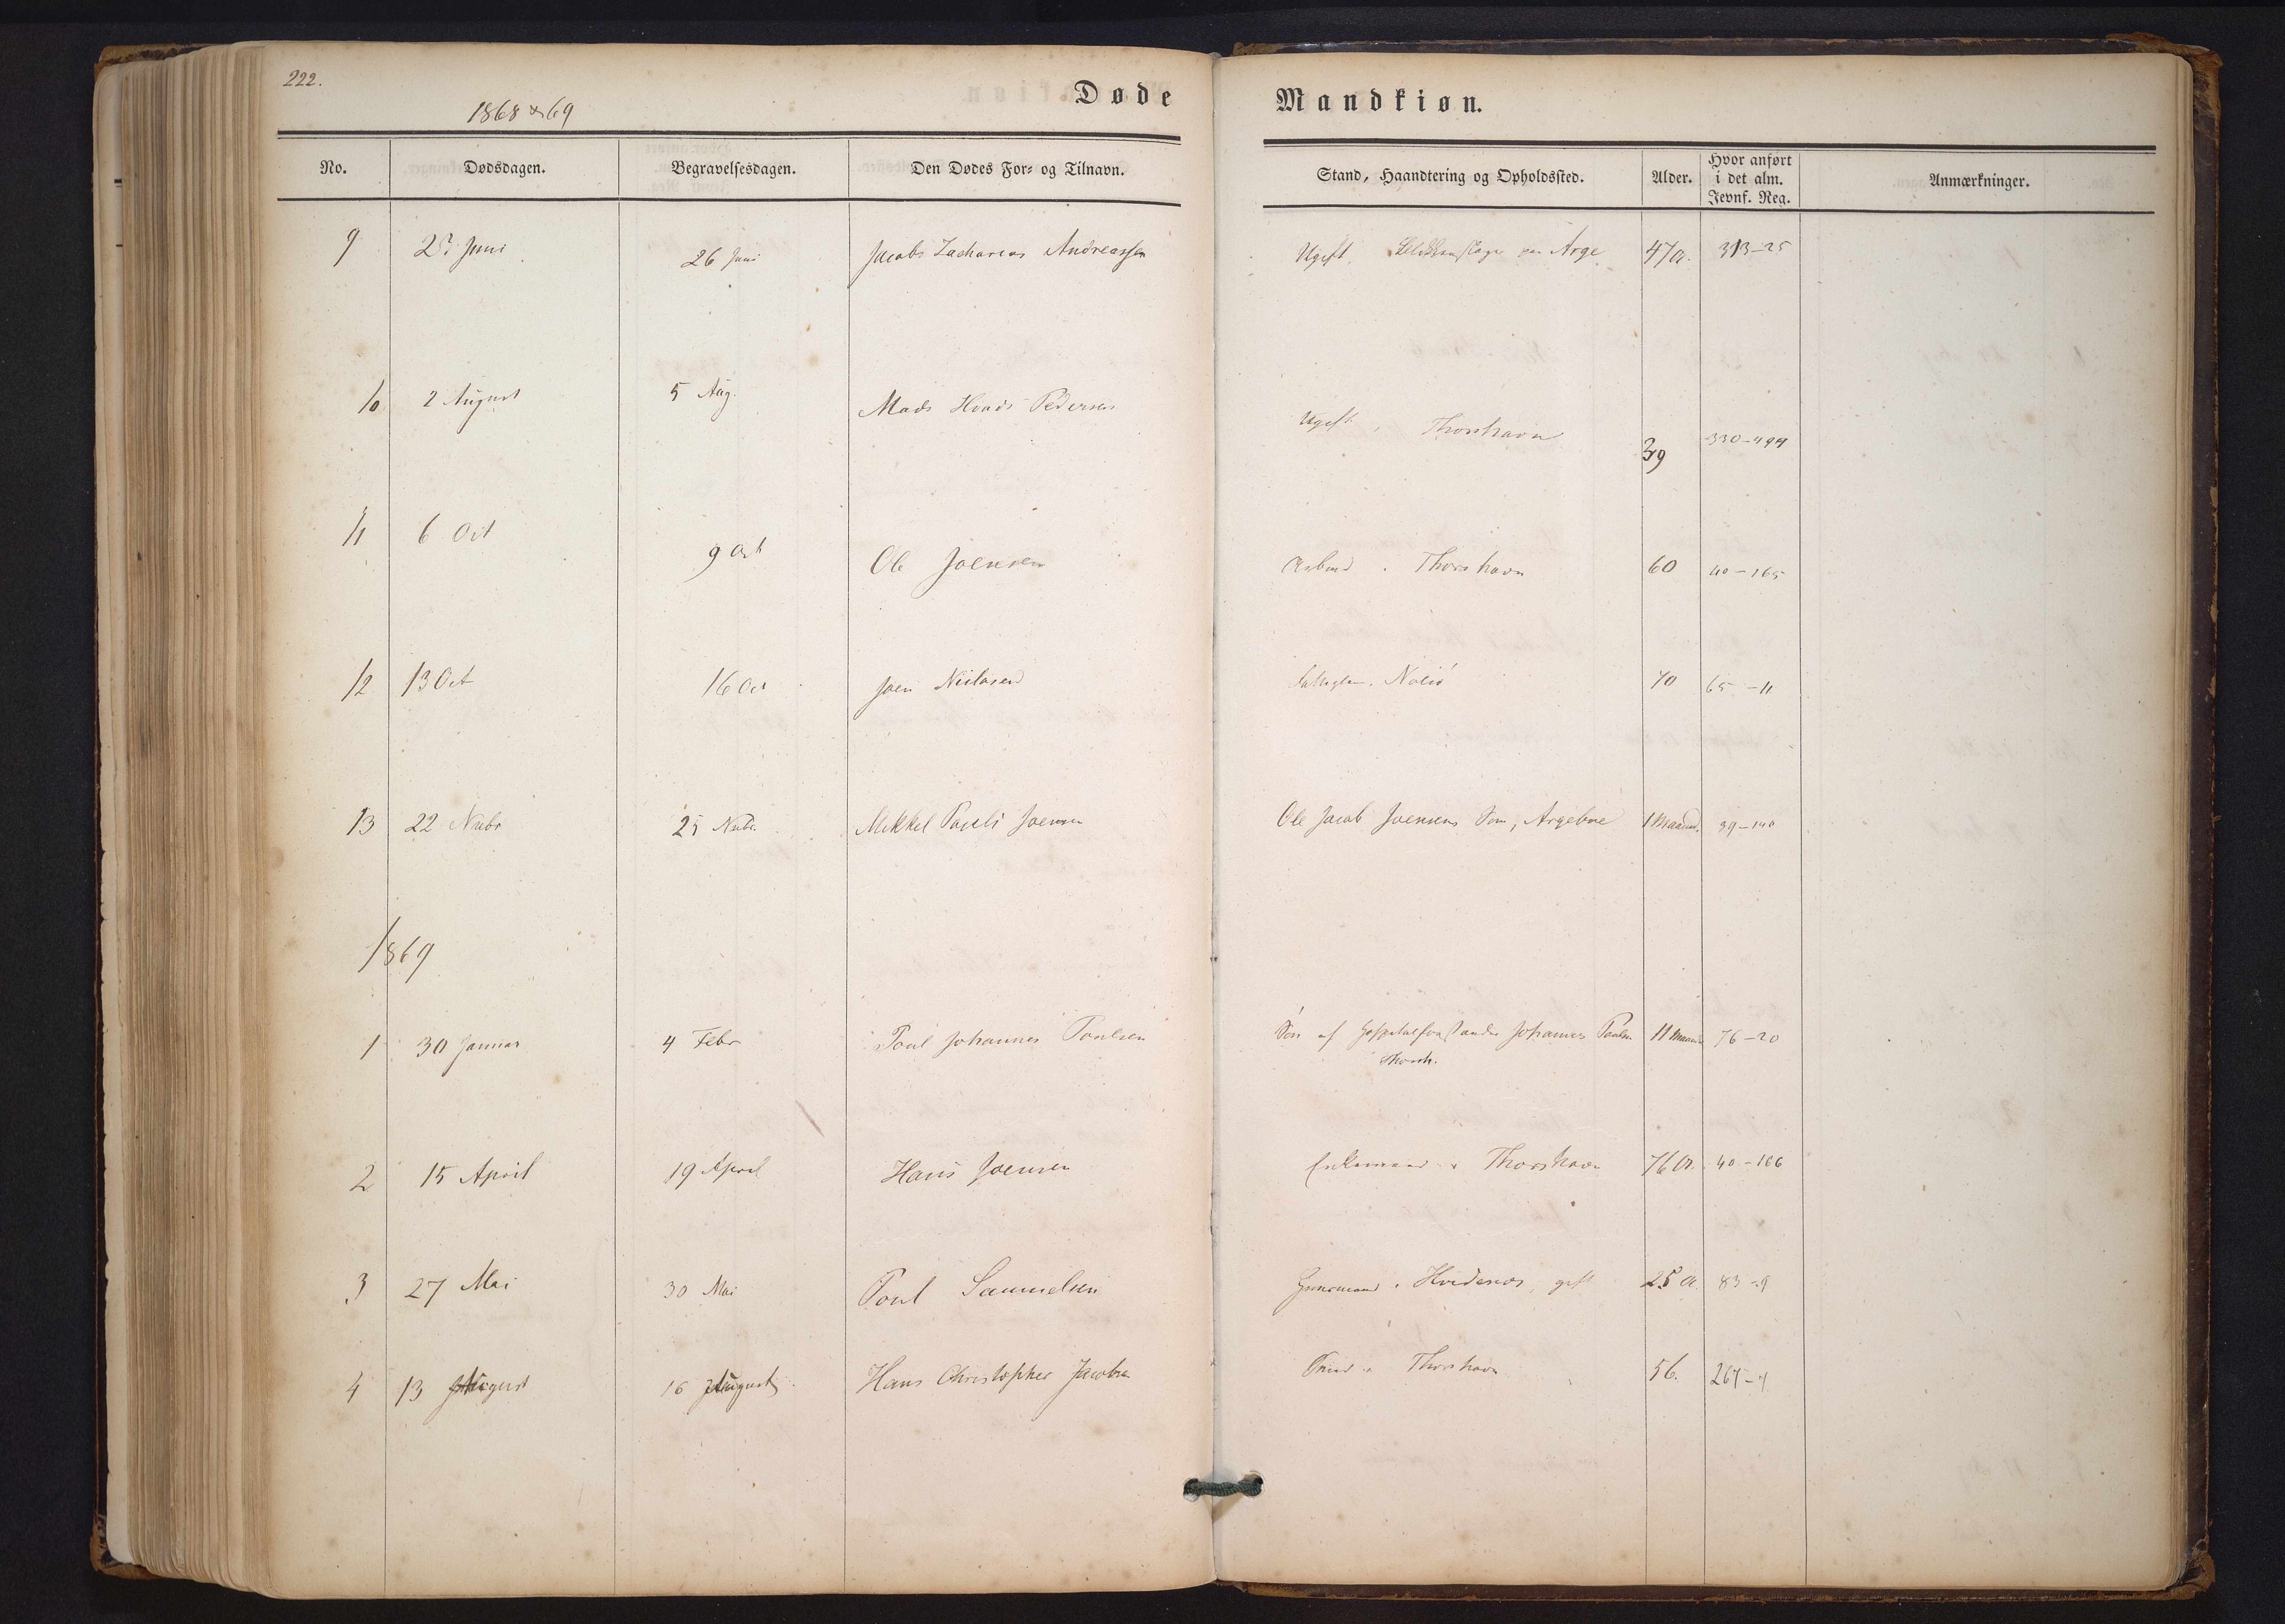 222.
1868 & 69
Døde
Mandkiøn.
No. Dødsdagen. Begravelsesdagen. Den Dødes For- og Tilnavn. Stand, Haandtering og Opholdssted. Alder. Hvor anført i det alm. Jevnf. Reg. Anmærkninger.
9 Juni 26 Juni Jacob Zacharias Andreassen Ugift. Arge 47 a. 313-25
10 2 August 5 Aug. Mads Pedersen Ugift, Thorshavn 39 330-494
11 6 Oct 9 Oct Ole Joensen Thorshavn 60 40-165
12 13 Oct 16 Oct Joen Nolsö 70 65-11
13 22 Nvbr 25 Nvbr. Mikkel Pauli Joensen Ole Jacob Joensens Søn, Argeboe 1 Maaned. 39-140
1869
1 30 Januar 4 Febr Poul Johannes Poulsen Søn af Johannes Poulsen 11 Maaned 76-20
Thorsh.
2 15 April 19 April Hans Joensen Enkemand Thorshavn 76 a. 40-166
3 27 Mai 30 Mai Poul Samuelsen Hvidenæs, gift 25 a. 83-9
4 13 August 16 August Hans Christopher Jacobsen Thorshavn 56.